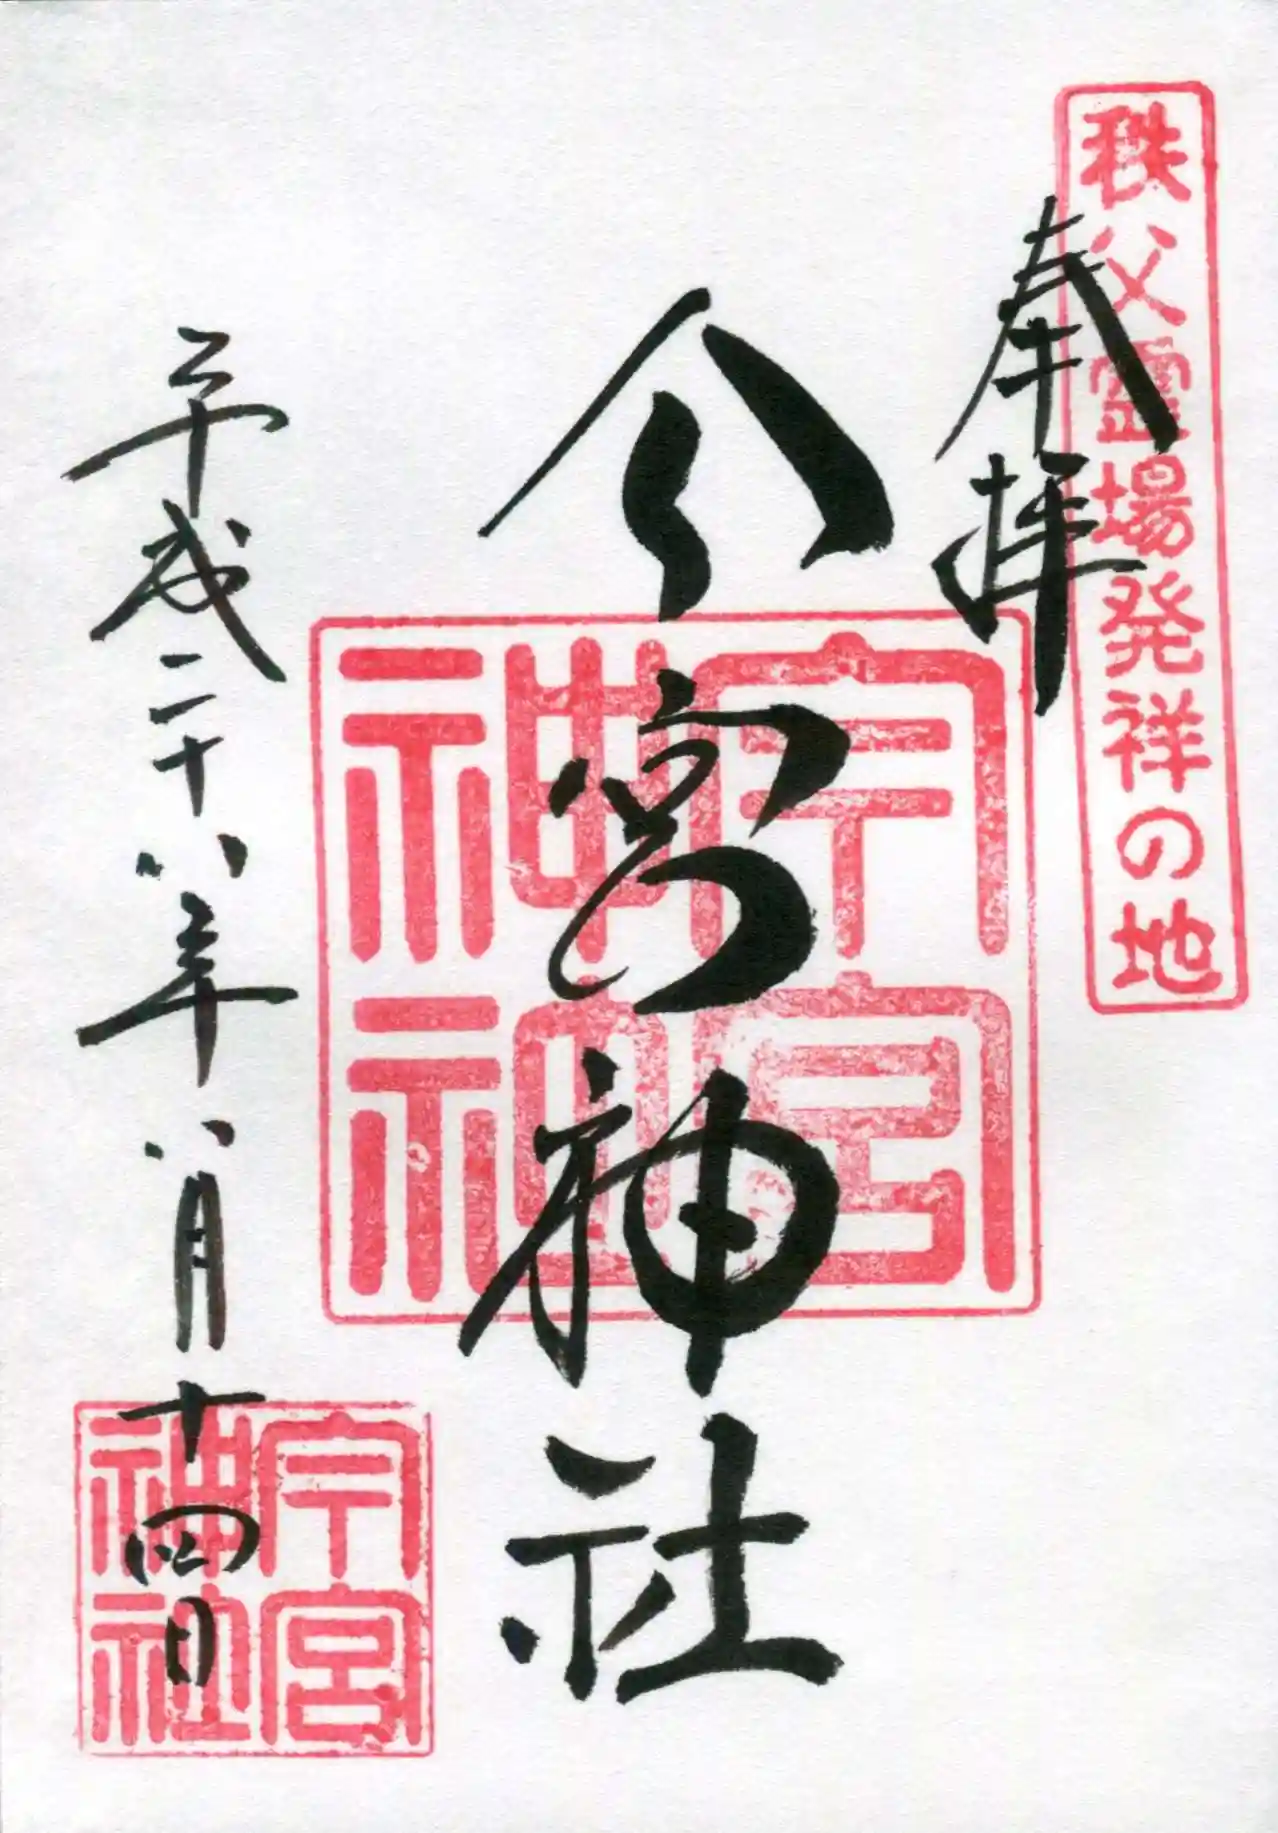 秩父霊場発祥の地
奉拝
今宮神社
宮神
神社
平成二十八年八月十四日
宮
神社